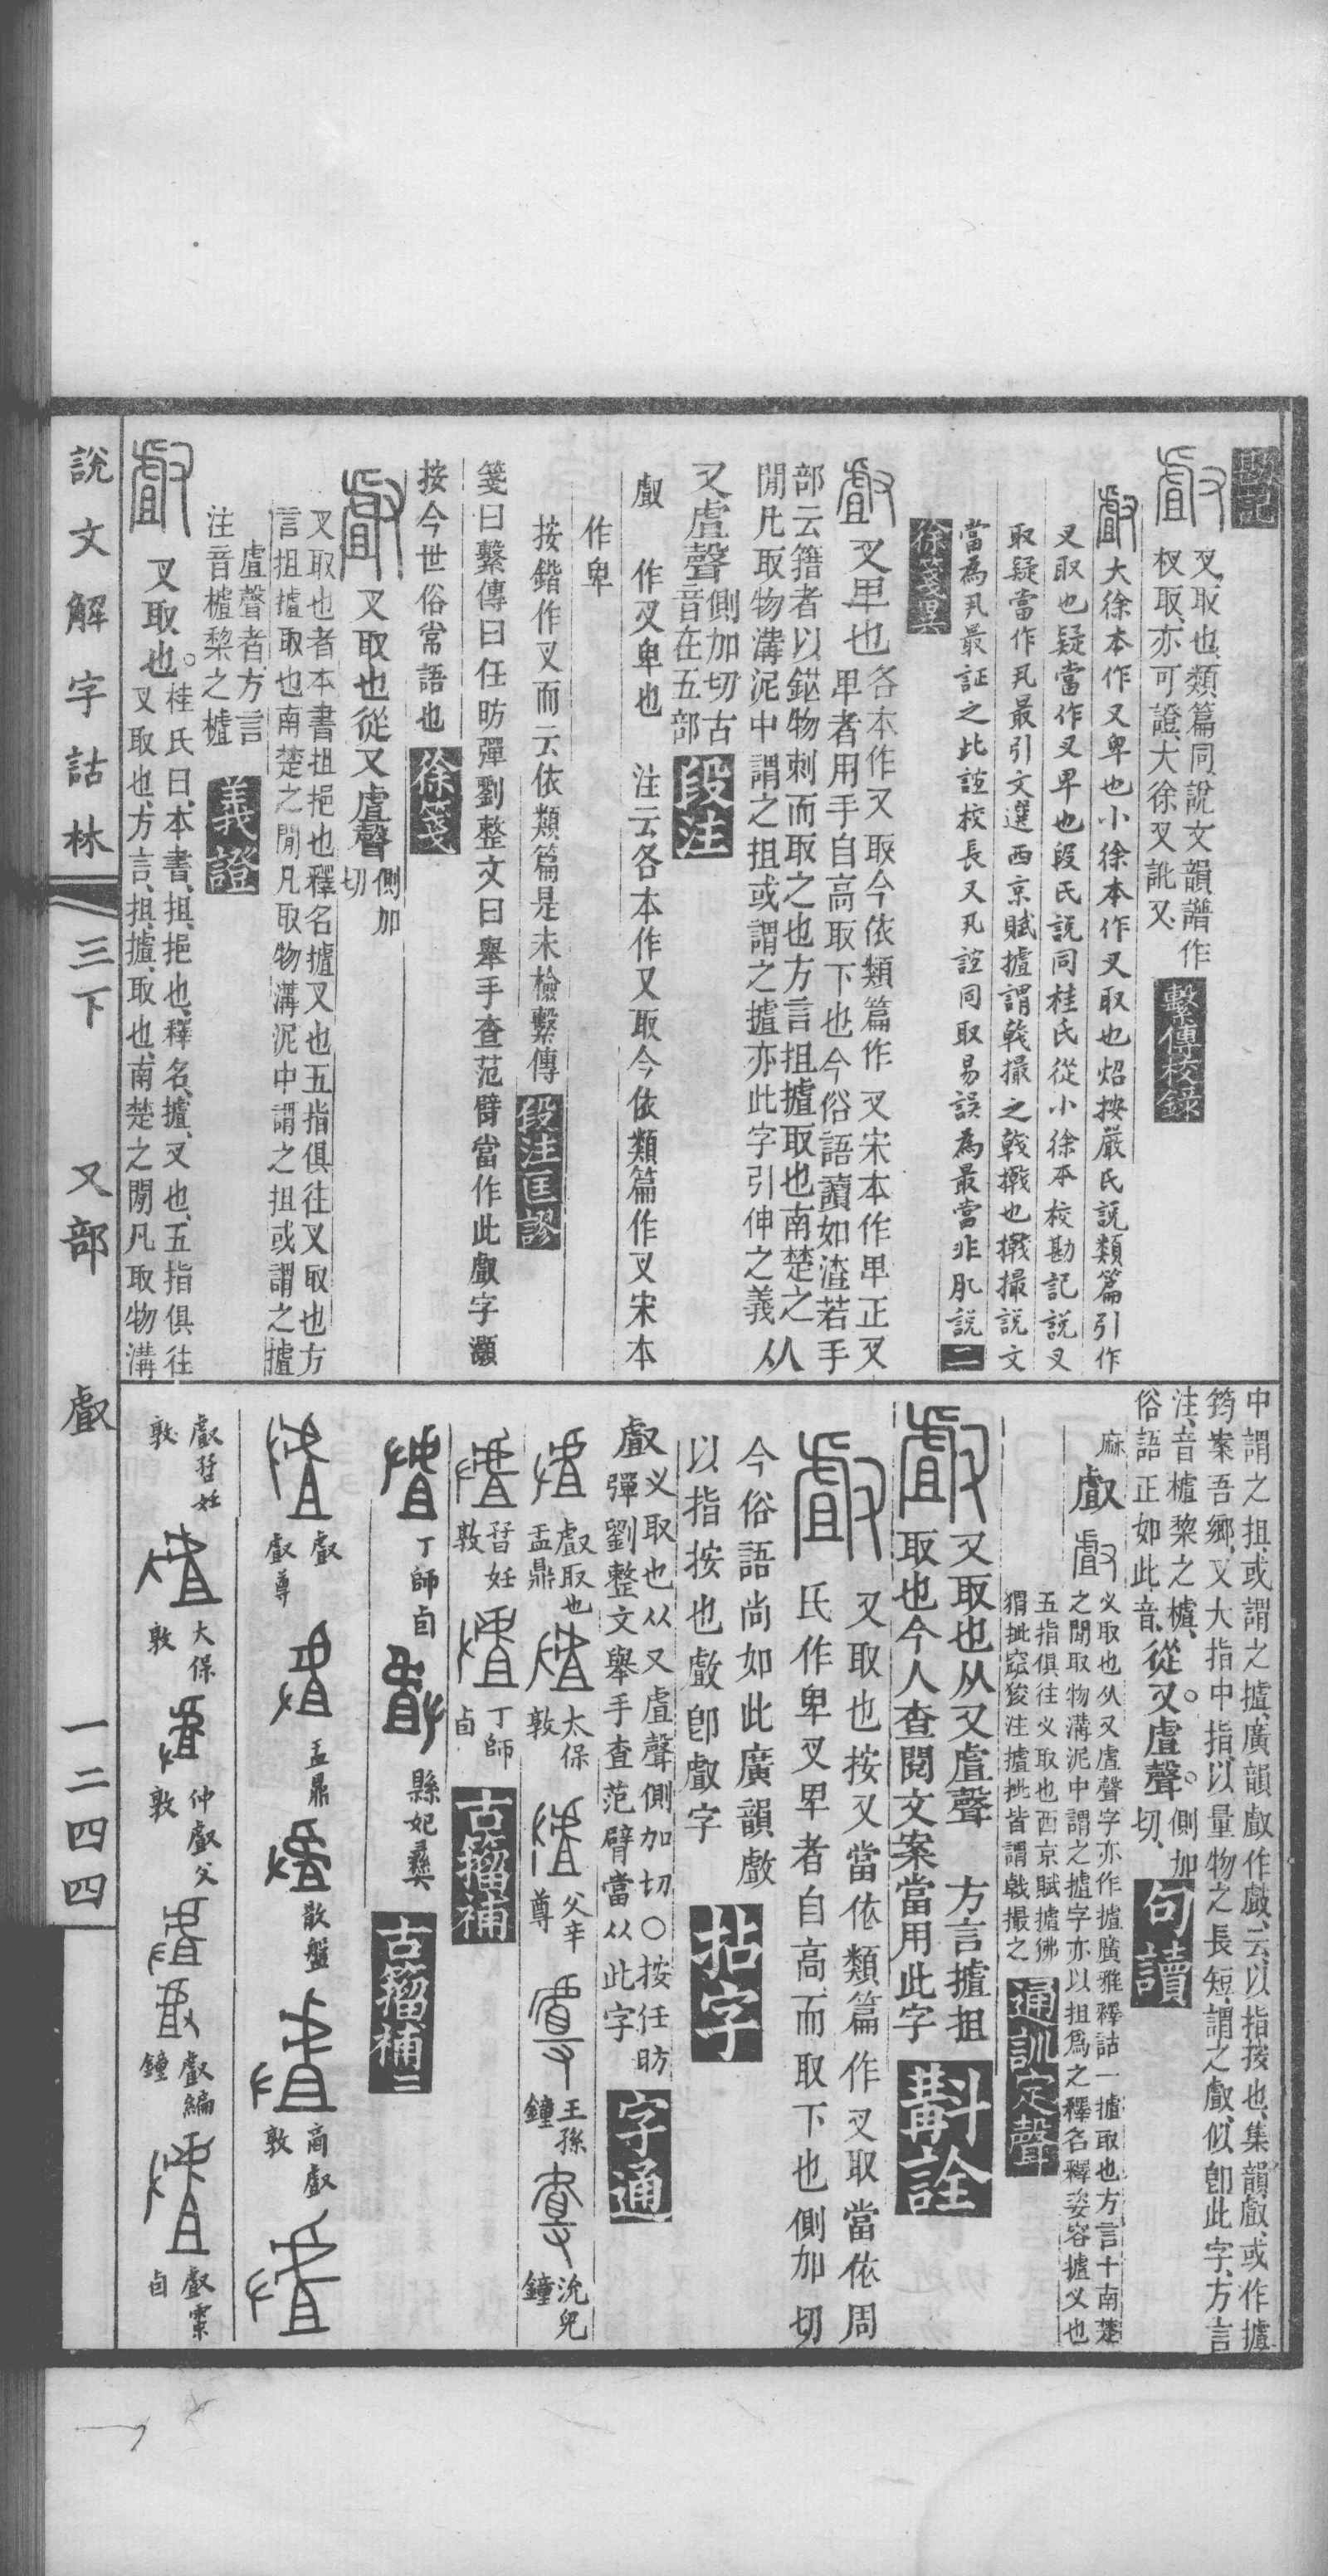 叉取也類篇同說文韻譜作
杈取亦可證大徐叉訛又
繫傳校錄
大徐本作又卑也小徐本作叉取也炤按嚴氏說類篇引作
叉取也疑當作叉卑也段氏說同桂氏從小徐本校勘記說叉
取疑當作丮最引文選西京賦摣謂戟撮之戟撠也撠撮說文
當為丮最証之此誼校長又丮誼同取易誤為最當非肊說
徐箋異
叉卑也
各本作又取今依類篇作叉宋本作卑正叉
卑者用手自高取下也今俗語讀如渣若手
部云籍者以鋌物刺而取之也方言抯摣取也南楚之
閒凡取物溝泥中謂之抯或謂之摣亦此字引伸之義
从
又虘聲
側加切古
音在五部
段注
䖒作叉卑也 注云各本作又取今依類篇作叉宋本
作卑
按鍇作叉而云依類篇是未檢繫傳
段注匡謬
箋曰繫傳曰任昉彈劉整文曰舉手查范臂當作此䖒字灝
按今世俗常語也
徐箋
叉取也從又虘聲
側加
切
叉取也者本書抯挹也釋名摣叉也五指俱往叉取也方
言抯摣取也南楚之閒凡取物溝泥中謂之抯或謂之摣
虘聲者方言
注音樝棃之樝
義證
叉取也。
桂氏曰、本書、抯、挹也、釋名、摣、叉也、五指俱往
叉取也、方言、抯、摣、取也、南楚之閒凡取物溝
說文解字詁林
三下 又部
一二四四
中謂之抯、或謂之摣、廣韻䖒作戱、云、以指按也、集韻䖒、或作摣
筠案吾鄉、又大指中指、以量物之長短、謂之䖒、似卽此字、方言
注、音樝黎之樝、
俗語正如此音、
從又虘聲。
側加
切、
句讀
麻
叉取也从又虘聲字亦作摣廣雅釋詁一摣取也方言十南楚
之閒取物溝泥中謂之摣字亦以抯爲之釋名釋姿容摣叉也
五指俱往叉取也西京賦摣狒
猬批窳狻注摣批皆謂戟撮之
通訓定聲
又取也从又虘聲 方言摣抯
取也今人查閱文案當用此字
斠詮
又取也按又當依類篇作叉取當依周
氏作卑叉卑者自高而取下也側加切
今俗語尚如此廣韻戱
以指按也戱卽䖒字
拈字
叉取也从又虘聲側加切〇按任昉
彈劉整文舉手查范臂當从此字
字通
䖒取也
盂鼎
太保
敦
父辛
尊
王孫
鐘
沇兒
鐘
丁師
卣
古籀補
丁師卣
縣妃彝
古籀補二
尊
盂鼎
散盤
敦
大保
敦
敦
鐘
卣